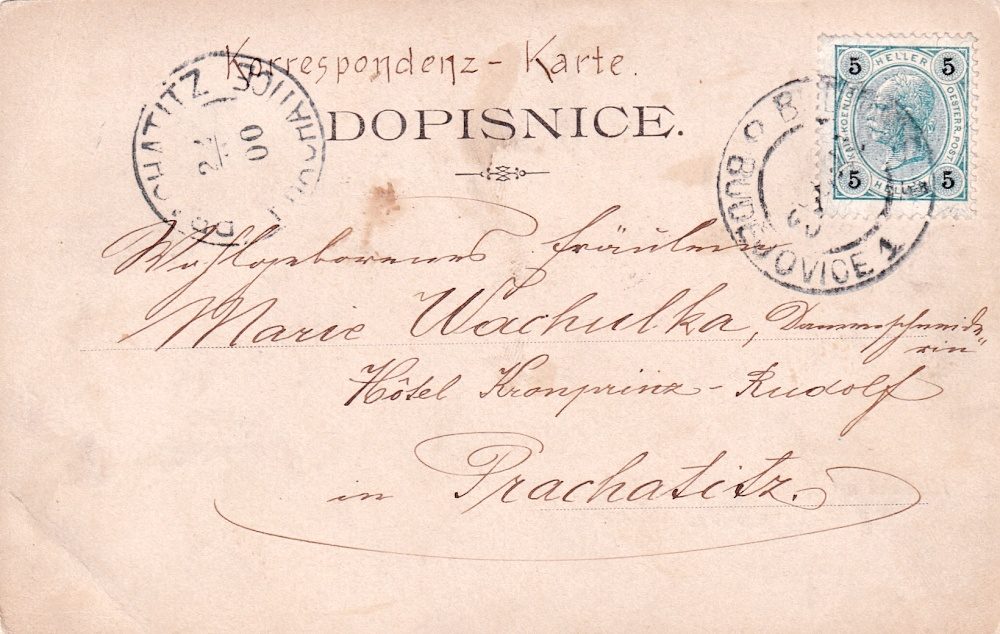 Korrespondenz - Karte.
DOPISNICE.
PRACHATITZ PRACHATICE
00
5 HELLER 5
KAIS. KOENIGL. OESTERR. POST
5 HELLER 5
BUDĚJOVICE 1
Wohlgeborenes Fräulein
Marie Wachulka, Damenschneide-
rin
Hôtel Kronprinz - Rudolf
in Prachatitz.